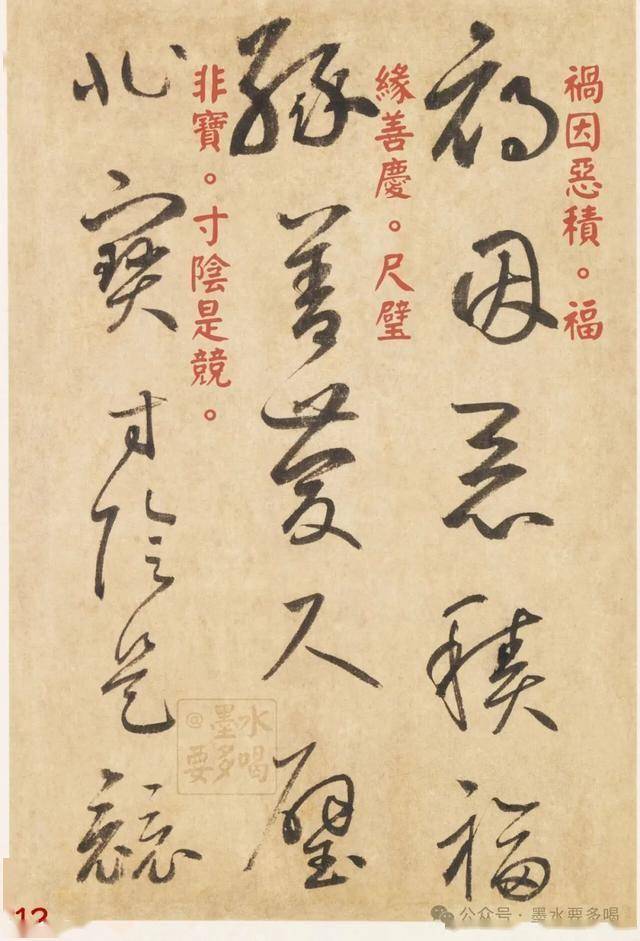 禍因惡積福
禍因惡積。福
緣善慶尺璧
緣善慶。尺璧
非寶寸陰是競
非寶。寸陰是競。
@墨水
要多喝
12
公众号·墨水要多喝